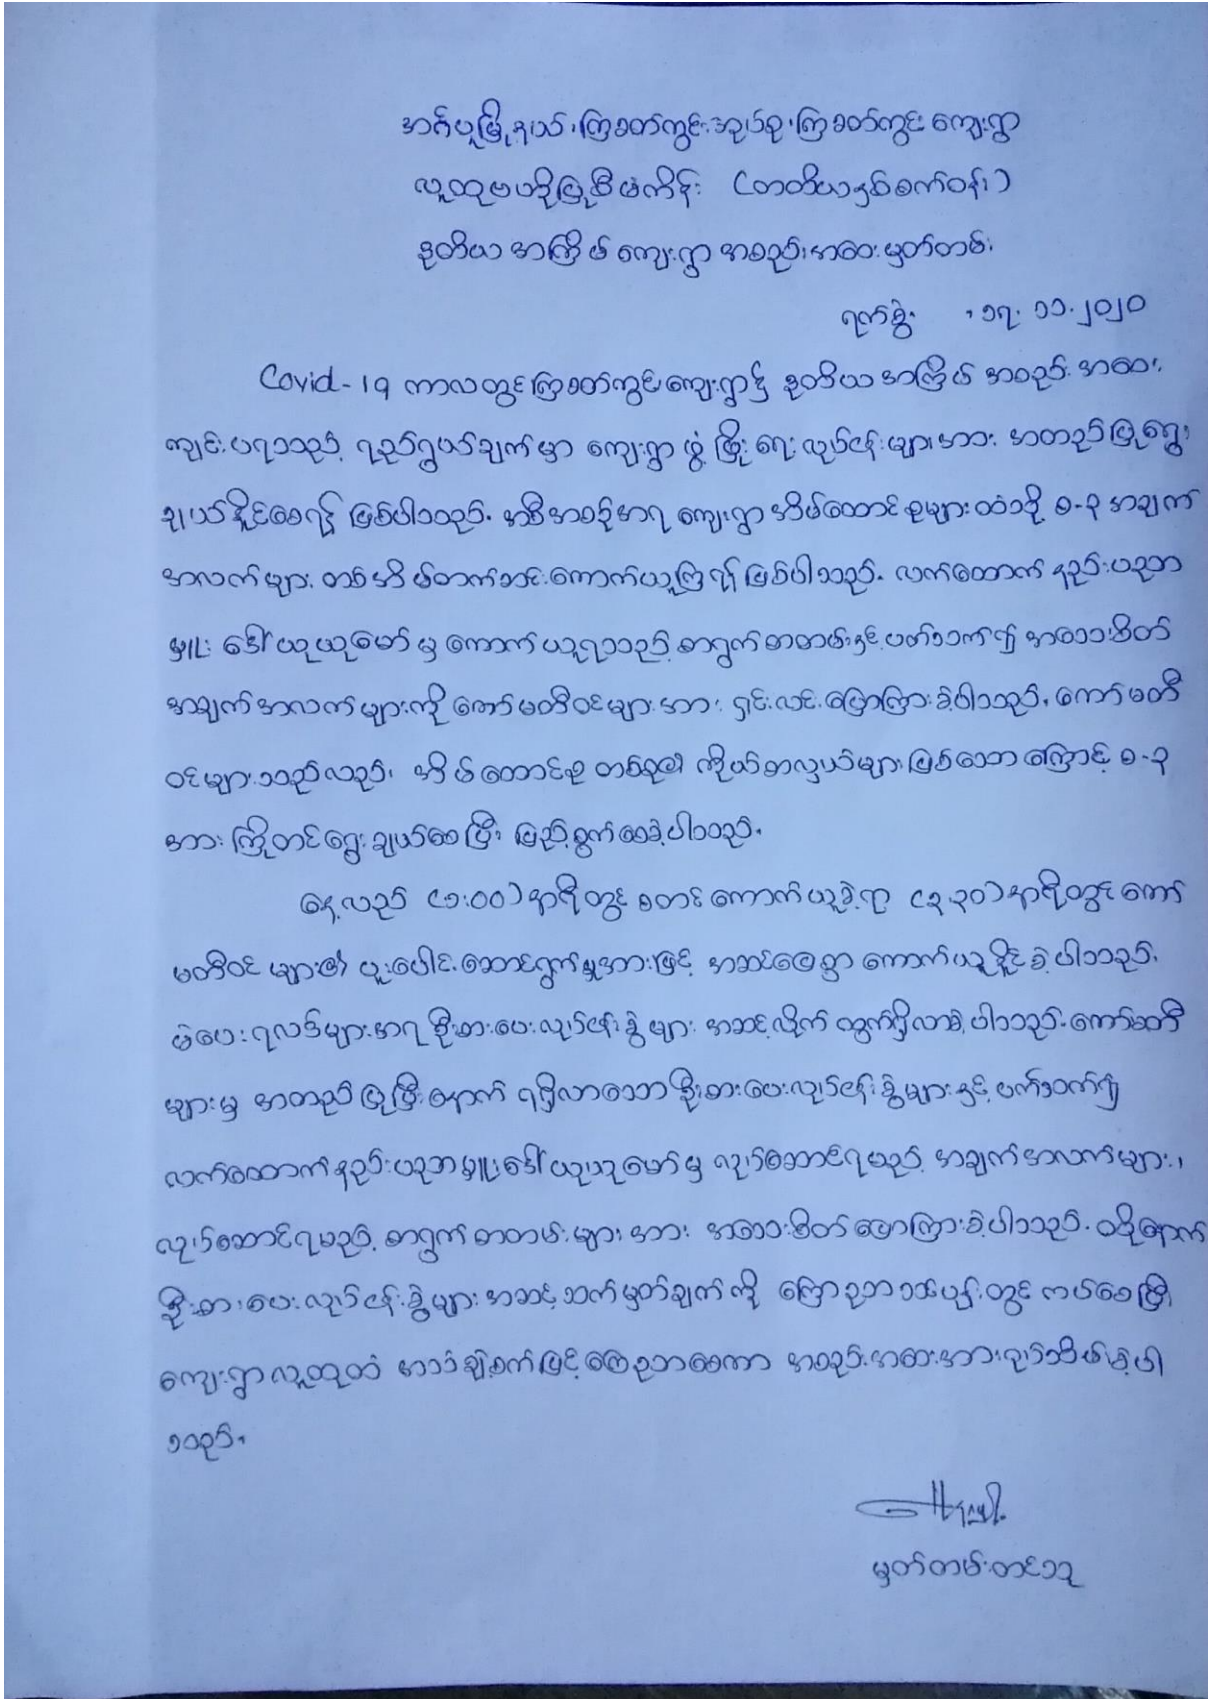 အင်္ဂပူမြို့နယ်၊ ကြခတ်ကွင်းအုပ်စု၊ ကြခတ်ကွင်းကျေးရွာ
လူထုဗဟိုပြုစီမံကိန်း (တတိယနှစ်စက်ဝန်း)
ဒုတိယအကြိမ် ကျေးရွာ အစည်းအဝေးမှတ်တမ်း
ရက်စွဲ ၊ ၁၇.၁၁.၂၀၂၀
Covid-19 ကာလတွင် ကြခတ်ကွင်းကျေးရွာ၌ ဒုတိယ အကြိမ် အစည်းအဝေး
ကျင်းပရသည့် ရည်ရွယ်ချက်မှာ ကျေးရွာ ဖွံ့ဖြိုးရေး လုပ်ငန်းများအား အတည်ပြုရွေး
ချယ်နိုင်စေရန် ဖြစ်ပါသည်။ အစီအစဉ်အရ ကျေးရွာအိမ်ထောင်စုများထံသို့ စ-၃ အချက်
အလက်များ တစ်အိမ်တက်ဆင်းကောက်ယူကြရန်ဖြစ်ပါသည်။ လက်ထောက် နည်းပညာ
မှူး ဒေါ်ယုယုမော်မှ ကောက်ယူရသည့် စာရွက်စာတမ်းနှင့်ပတ်သက်၍ အသေးစိတ်
အချက်အလက်များကို ကော်မတီဝင်များအား ရှင်းလင်းပြောကြားခဲ့ပါသည်။ ကော်မတီ
ဝင်များသည်လည်း အိမ်ထောင်စု တစ်စု၏ ကိုယ်စားလှယ်များဖြစ်သောကြောင့် စ-၃
အား ကြိုတင်ရွေးချယ်စေပြီး ဖြည့်စွက်စေခဲ့ပါသည်။
နေ့လည် (၁:၀၀)နာရီတွင် စတင်ကောက်ယူခဲ့ရာ (၃:၃၀)နာရီတွင် ကော်
မတီဝင်များ၏ ပူးပေါင်းဆောင်ရွက်မှုအားဖြင့် အဆင်ပြေစွာ ကောက်ယူနိုင်ခဲ့ပါသည်။
မဲပေးရလဒ်များအရ ဦးစားပေးလုပ်ငန်းခွဲများ အဆင့်လိုက် ထွက်ရှိလာခဲ့ပါသည်။ ကော်မတီ
များမှ အတည်ပြုပြီးနောက် ရရှိလာသော ဦးစားပေးလုပ်ငန်းခွဲများနှင့် ပတ်သက်၍
လက်ထောက်နည်းပညာမှူးဒေါ်ယုယုမော်မှ လုပ်ဆောင်ရမည့် အချက်အလက်များ၊
လုပ်ဆောင်ရမည့် စာရွက်စာတမ်းများအား အသေးစိတ်ပြောကြားခဲ့ပါသည်။ ထို့နောက်
ဦးစားပေးလုပ်ငန်းခွဲများ အဆင့်သတ်မှတ်ချက်ကို ကြော်ငြာသင်ပုန်းတွင် ကပ်စေပြီး
ကျေးရွာလူထုထံ အသံချဲ့စက်ဖြင့် ကြေညာစေကာ အစည်းအဝေးအားရုပ်သိမ်းခဲ့ပါ
သည်။
မှတ်တမ်းတင်သူ